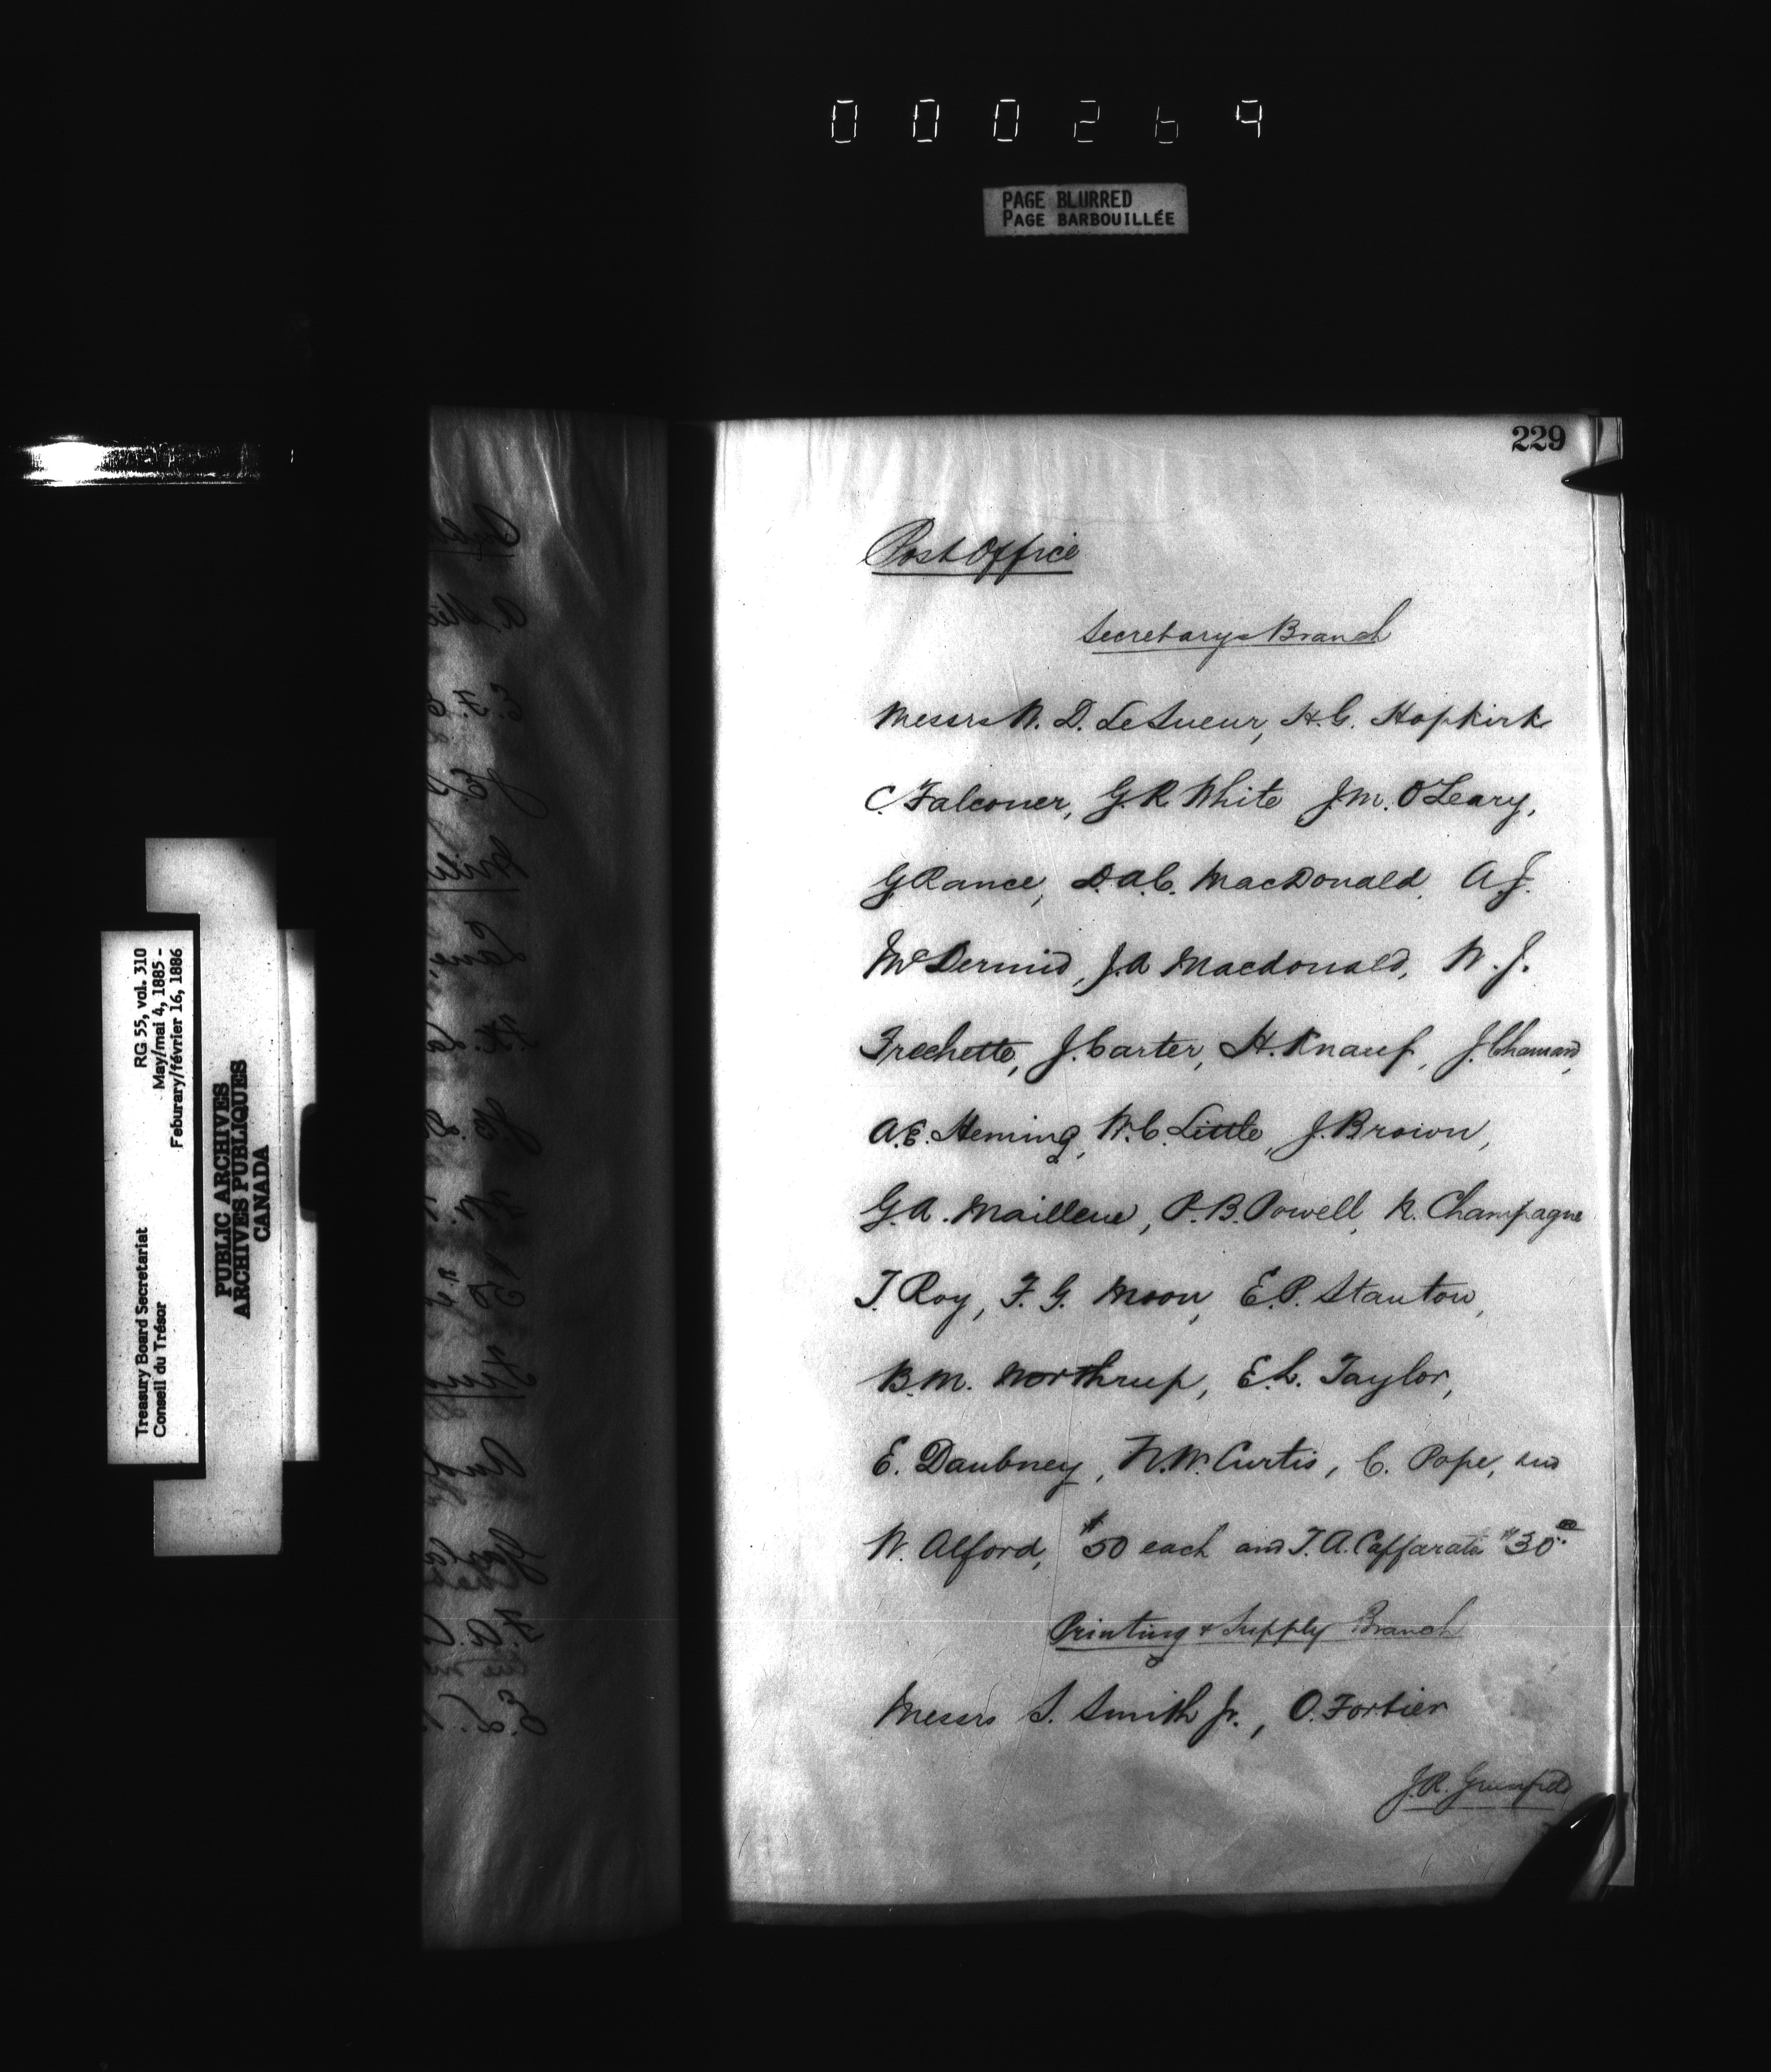 000269
PAGE BLURRED
PAGE BARBOUILLÉE
229
Post Office
Secretary's Branch
Messrs W. D. LeSueur, H.C. Hopkirk
C. Falconer, G.R White J.M. O'Leary,
G Rance, D.A.C. MacDonald, A.J.
McDermid, J.A Macdonald, W. J.
Frechette, J. Carter, H. Knauf, J. Chamard,
A.E. Heming, W.C. Little, J. Brown,
G.A. Mailleue, P.B. Powell, N. Champagne
T. Roy, F. G. Moon, E.P. Stanton,
B.M. Northrup, E.L. Taylor,
E. Daubney, N.W. Curtis, C. Pope, and
W. Alford, $50 each and T.A. Caffarata $30.00
Printing & Supply Branch
Messrs S. Smith Jr., O. Fortier
J.R.
Treasury Board Secretariat RG 55, vol. 310
Conseil du Trésor May/mai 4, 1885 -
Feburary/février 16, 1886
PUBLIC ARCHIVES
ARCHIVES PUBLIQUES
CANADA